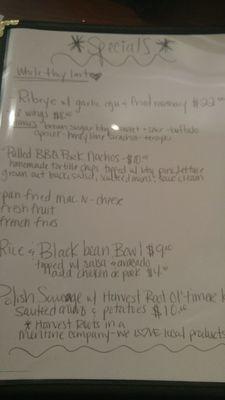 *Specials*
While they last
Ribeye w/ garlic, eggs & fried rosemary $22
wings $8
brown sugar bbq sweet & sour - buffalo
honey
Pulled BBQ Pork Nachos - $10
homemade tortilla chips topped w/ bbq pork, lettuce
green and black salsa, sauteed onions & sour cream
pan fried mac-n-cheese
fresh fruit
french fries
Rice & Black bean Bowl $9
topped w/ salsa & avocado
add chicken or pork $4
Polish Sausage w/ Harvest Root Ol' timere
sauteed & potatoes $10
* Harvest Roots is a
company - we LOVE local products